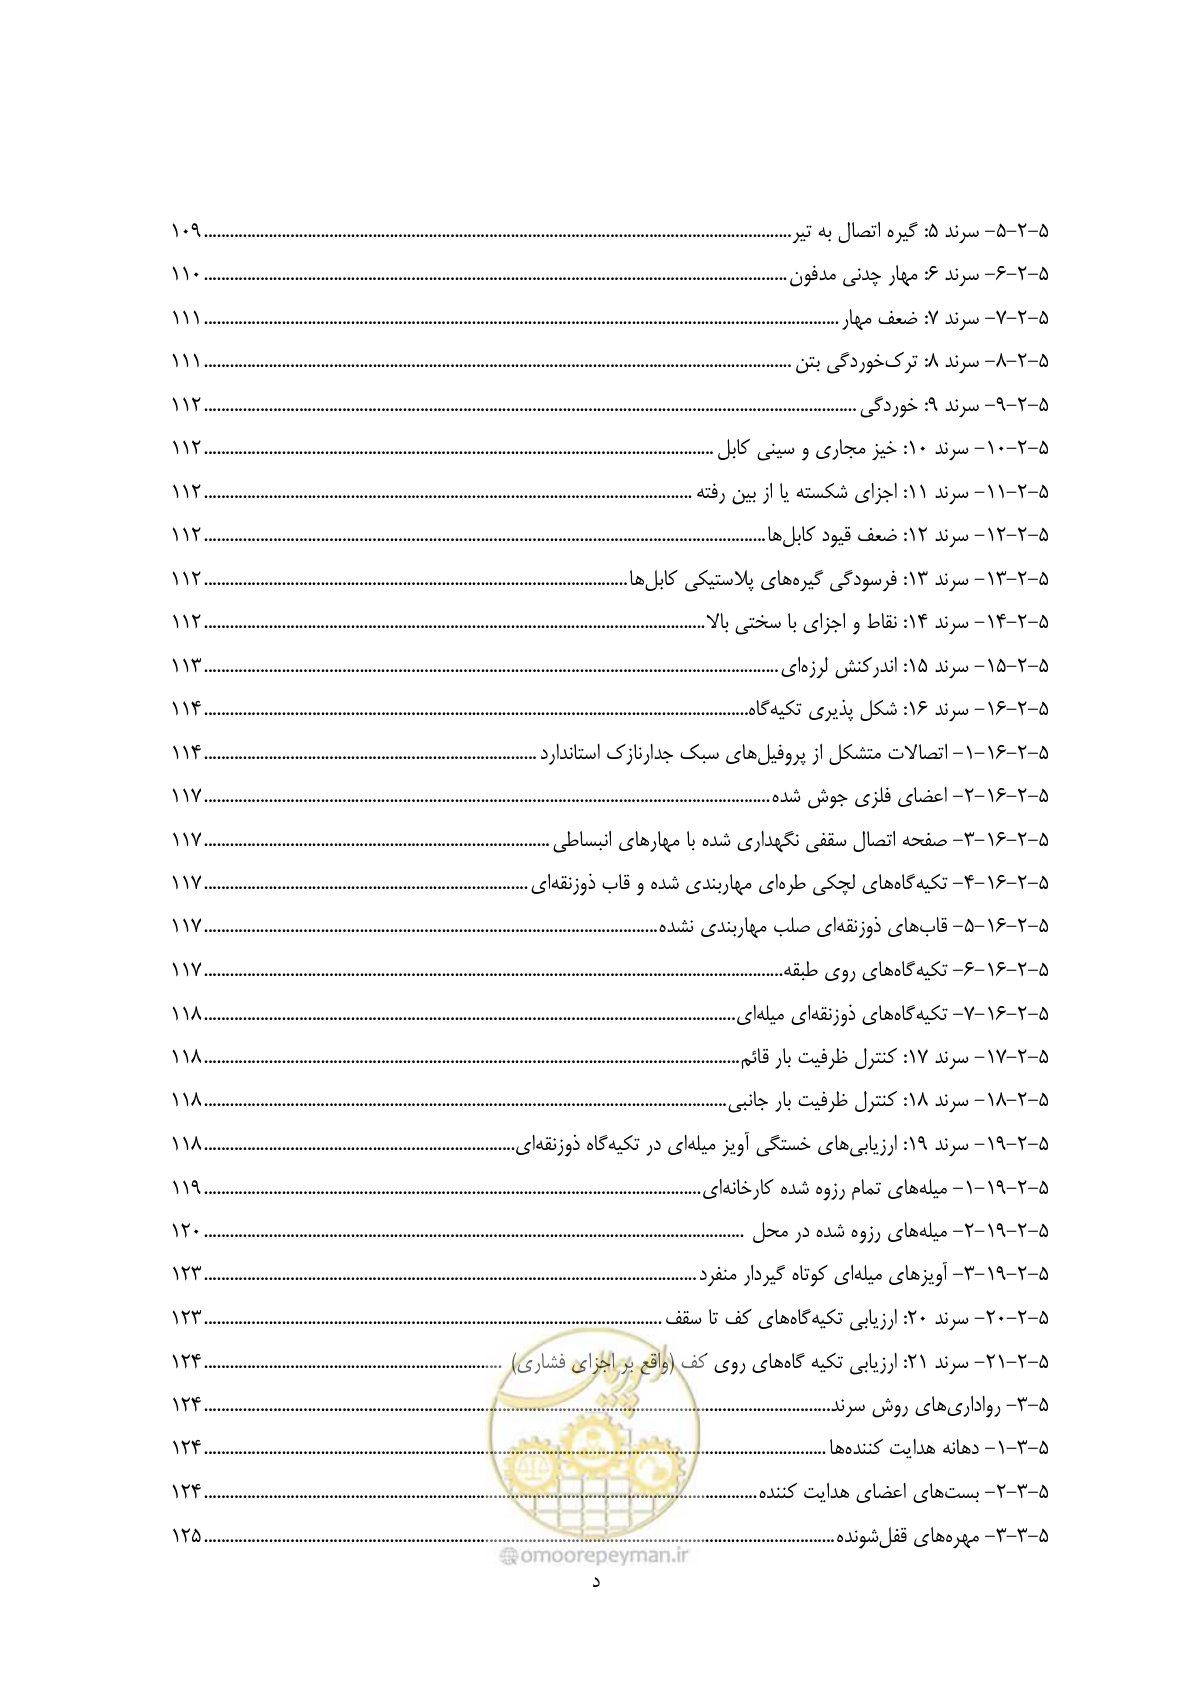 ۵-۲-۵- سرند ۵: گیره اتصال به تیر ۱۰۹
۵-۲-۶- سرند ۶: مهار چدنی مدفون ۱۱۰
۵-۲-۷- سرند ۷: ضعف مهار ۱۱۱
۵-۲-۸- سرند ۸: ترک‌خوردگی بتن ۱۱۱
۵-۲-۹- سرند ۹: خوردگی ۱۱۲
۵-۲-۱۰- سرند ۱۰: خیز مجاری و سینی کابل ۱۱۲
۵-۲-۱۱- سرند ۱۱: اجزای شکسته یا از بین رفته ۱۱۲
۵-۲-۱۲- سرند ۱۲: ضعف قیود کابل‌ها ۱۱۲
۵-۲-۱۳- سرند ۱۳: فرسودگی گیره‌های پلاستیکی کابل‌ها ۱۱۲
۵-۲-۱۴- سرند ۱۴: نقاط و اجزای با سختی بالا ۱۱۲
۵-۲-۱۵- سرند ۱۵: اندرکنش لرزه‌ای ۱۱۳
۵-۲-۱۶- سرند ۱۶: شکل پذیری تکیه‌گاه ۱۱۴
۵-۲-۱۶-۱- اتصالات متشکل از پروفیل‌های سبک جدارنازک استاندارد ۱۱۴
۵-۲-۱۶-۲- اعضای فلزی جوش شده ۱۱۷
۵-۲-۱۶-۳- صفحه اتصال سقفی نگهداری شده با مهارهای انبساطی ۱۱۷
۵-۲-۱۶-۴- تکیه‌گاه‌های لچکی طره‌ای مهاربندی شده و قاب ذوزنقه‌ای ۱۱۷
۵-۲-۱۶-۵- قاب‌های ذوزنقه‌ای صلب مهاربندی نشده ۱۱۷
۵-۲-۱۶-۶- تکیه‌گاه‌های روی طبقه ۱۱۷
۵-۲-۱۶-۷- تکیه‌گاه‌های ذوزنقه‌ای میله‌ای ۱۱۸
۵-۲-۱۷- سرند ۱۷: کنترل ظرفیت بار قائم ۱۱۸
۵-۲-۱۸- سرند ۱۸: کنترل ظرفیت بار جانبی ۱۱۸
۵-۲-۱۹- سرند ۱۹: ارزیابی‌های خستگی آویز میله‌ای در تکیه‌گاه ذوزنقه‌ای ۱۱۸
۵-۲-۱۹-۱- میله‌های تمام رزوه شده کارخانه‌ای ۱۱۹
۵-۲-۱۹-۲- میله‌های رزوه شده در محل ۱۲۰
۵-۲-۱۹-۳- آویزهای میله‌ای کوتاه گیردار منفرد ۱۲۳
۵-۲-۲۰- سرند ۲۰: ارزیابی تکیه‌گاه‌های کف تا سقف ۱۲۳
۵-۲-۲۱- سرند ۲۱: ارزیابی تکیه گاه‌های روی کف (واقع بر اجزای فشاری) ۱۲۴
۵-۳- رواداری‌های روش سرند ۱۲۴
۵-۳-۱- دهانه هدایت کننده‌ها ۱۲۴
۵-۳-۲- بست‌های اعضای هدایت کننده ۱۲۴
۵-۳-۳- مهره‌های قفل‌شونده ۱۲۵
امور پیمان
@omoorepeyman.ir
د